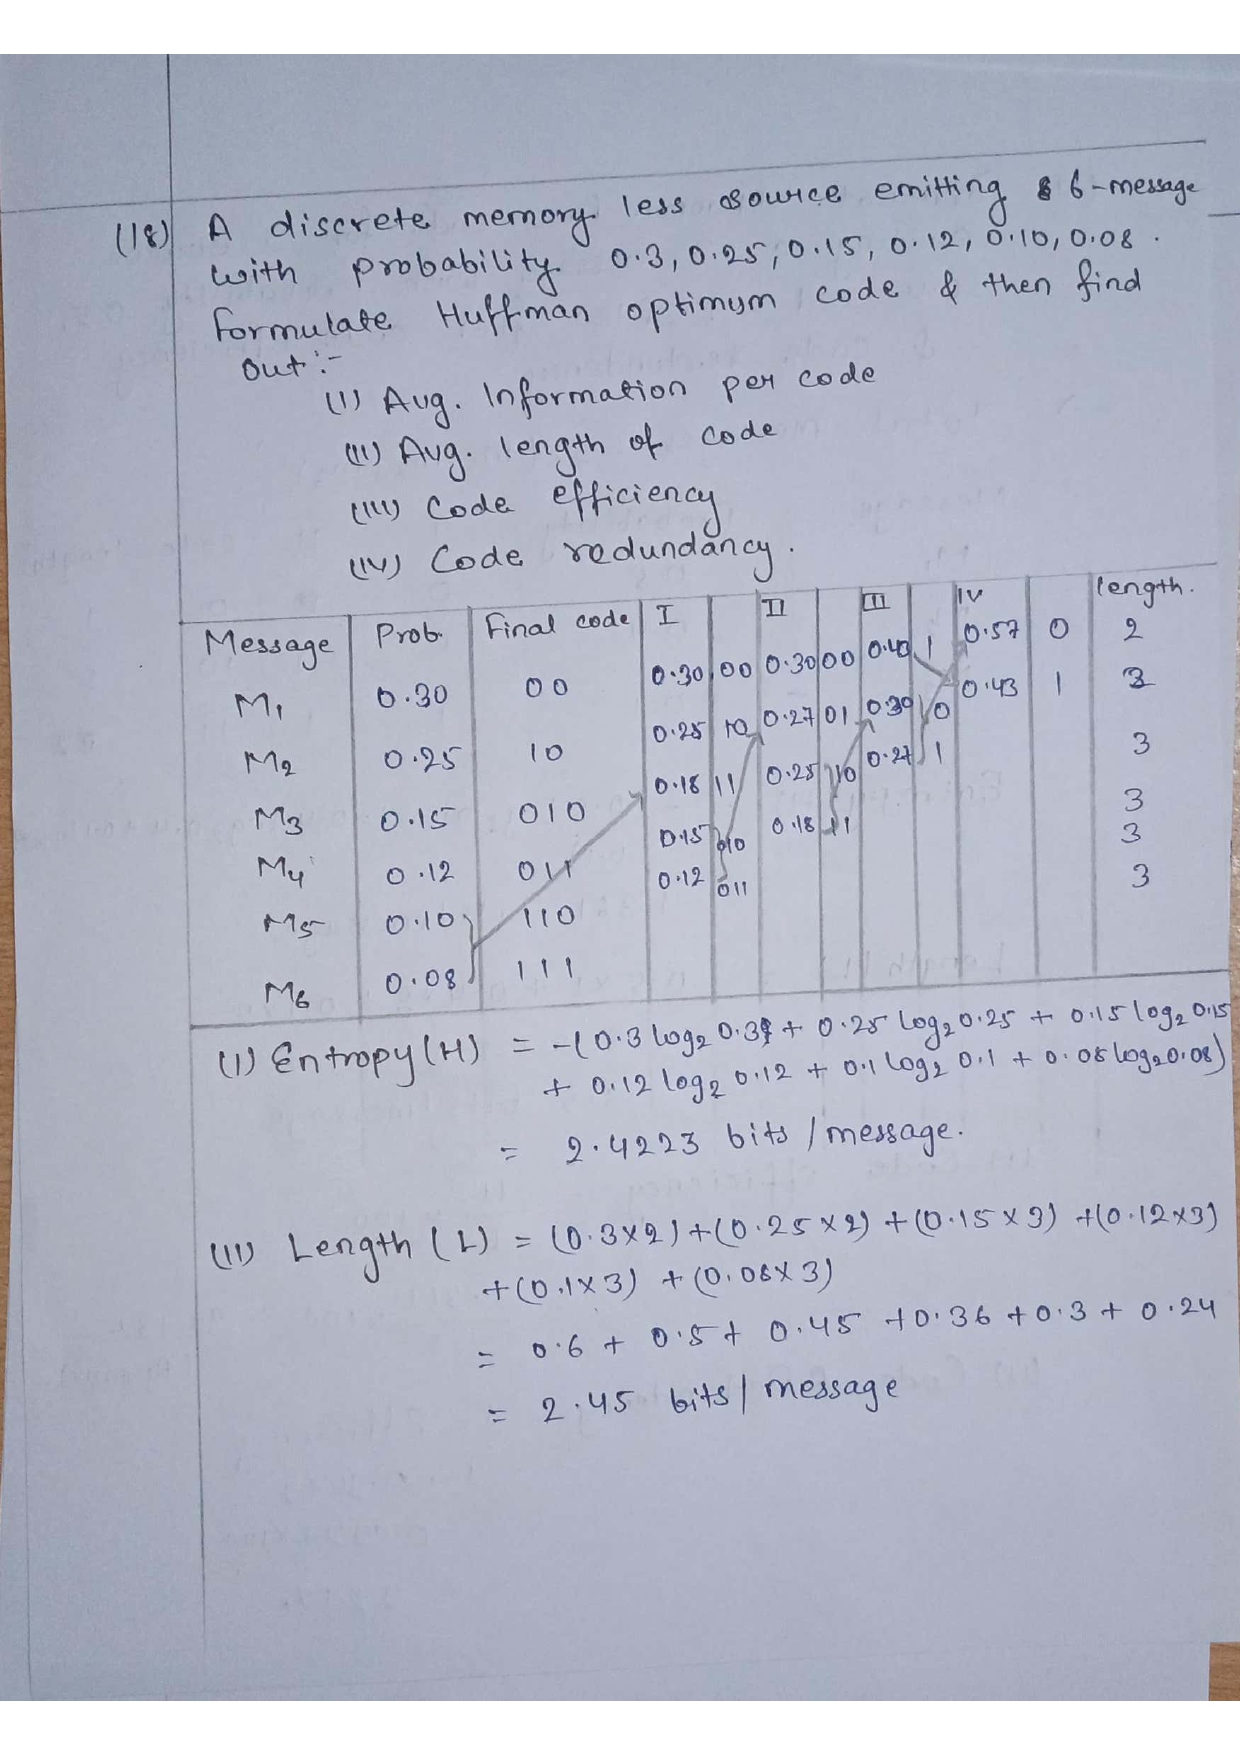 (18) A discrete memory less source emitting 6-message
with probability 0.3, 0.25, 0.15, 0.12, 0.10, 0.08.
Formulate Huffman optimum code & then find
out :-
(I) Avg. Information per code
(II) Avg. length of code
(III) Code efficiency
(IV) Code redundancy.
Message Prob. Final code I II III IV length.
M1 0.30 00 0.30 00 0.30 00 0.43 1 0.57 0 2
M2 0.25 10 0.25 10 0.27 01 0.30 0 0.43 1 2
M3 0.15 010 0.18 11 0.25 10 0.27 1 3
M4 0.12 011 0.15 010 0.18 11 3
M5 0.10 110 0.12 011 3
M6 0.08 111 3
(I) Entropy (H) = -(0.3 log2 0.3 + 0.25 log2 0.25 + 0.15 log2 0.15
+ 0.12 log2 0.12 + 0.1 log2 0.1 + 0.08 log2 0.08)
= 2.4223 bits / message.
(II) Length (L) = (0.3x2) + (0.25x2) + (0.15x3) + (0.12x3)
+ (0.1x3) + (0.08x3)
= 0.6 + 0.5 + 0.45 + 0.36 + 0.3 + 0.24
= 2.45 bits / message